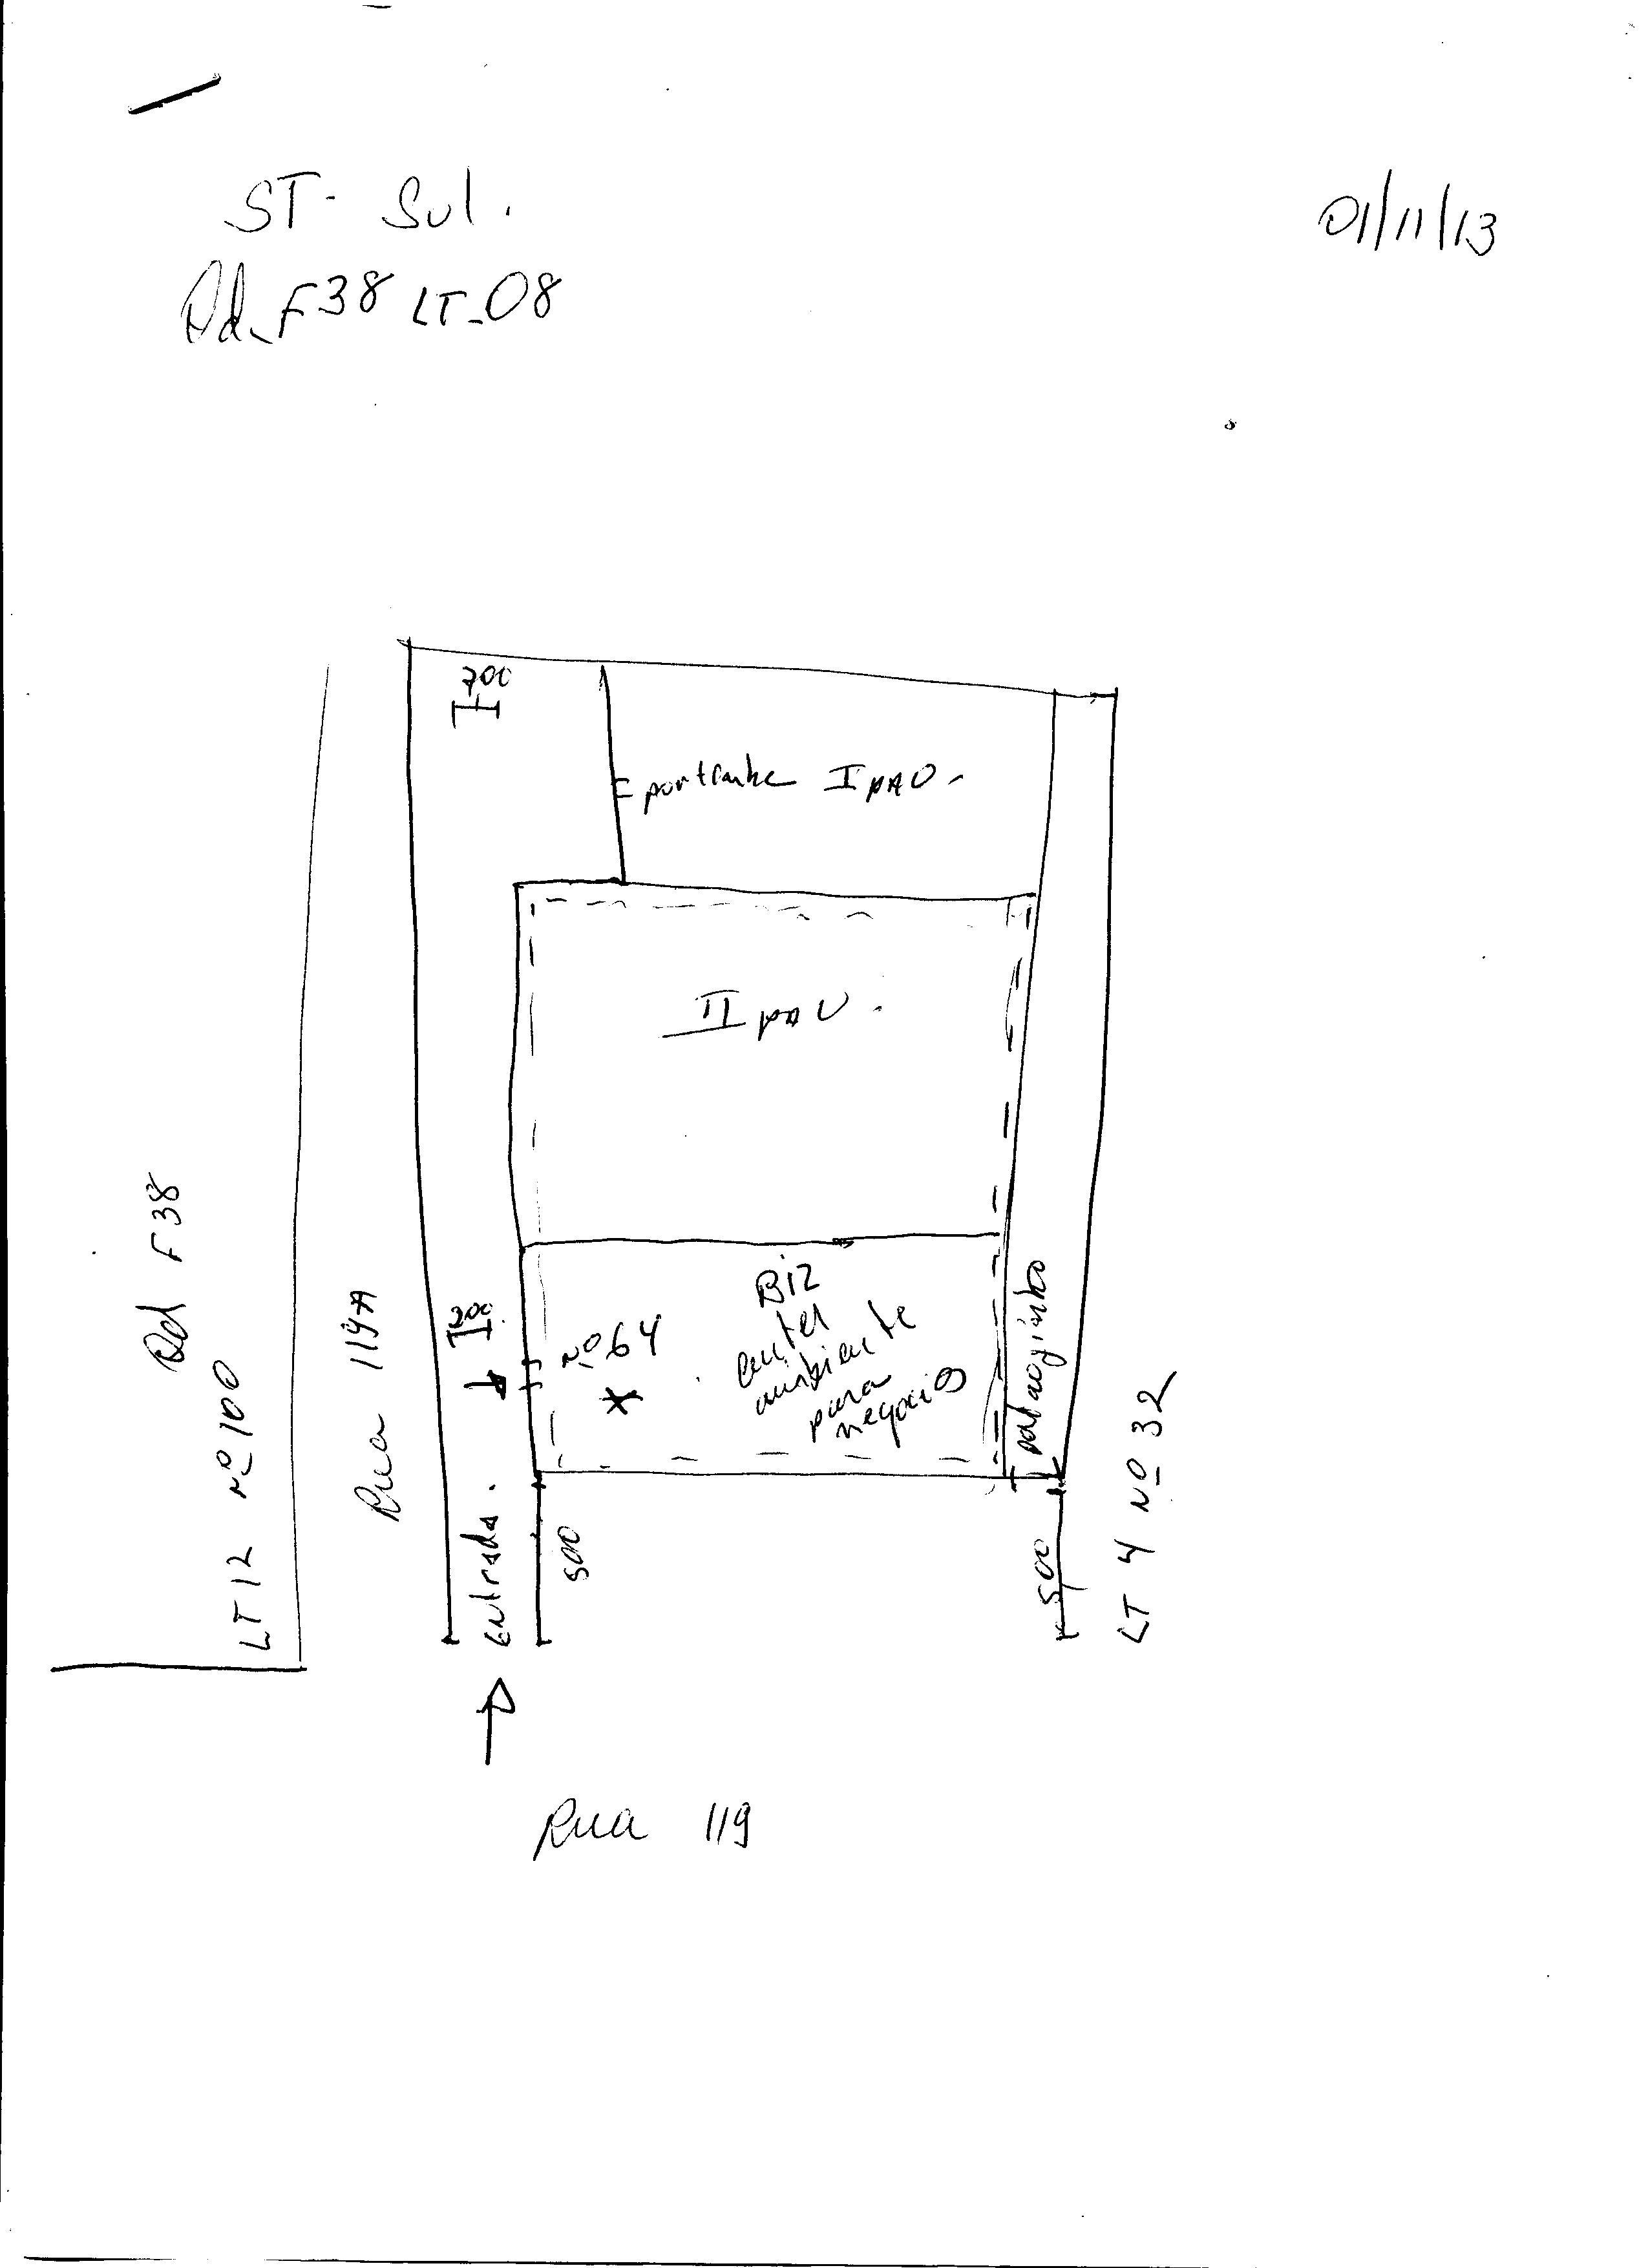 ST- Sul.
01/11/13
Qd_F38 LT_08
700
portinha I PAV.
II PAV.
Qd F38
LT 12 Nº 100
Rua 119A
200
Nº 64
Biz
Center
ambiente
para
negocios
Entrada.
500
500
LT 4 Nº 32
Rua 119